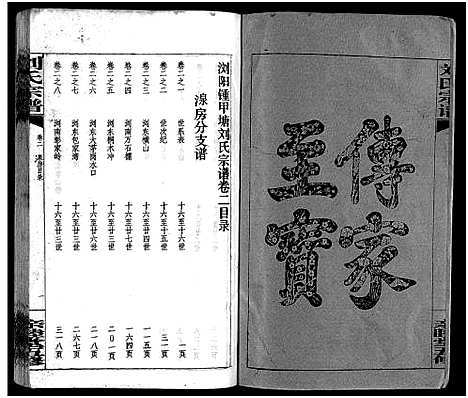 刘氏宗谱
傳家
至寶
浏阳锺甲塘刘氏宗谱卷二目录
湶房分支谱
卷二之一 世系表 十六至十六世 一页
卷二之二 世次纪 十六至廿五世 三一页
卷二之三 浏东横山 十六至廿四世 一一五页
卷二之四 浏南万石棚 十六至廿七世 一四五页
卷二之五 浏东桐木冲 十六至廿世 二〇一页
卷二之六 浏东大茅岗水口 十六至廿六世 二四八页
卷二之七 浏东包家湾 十六至廿三世 二六七页
卷二之八 浏南彭家岭 十六至廿三世 三一八页
刘氏宗谱
卷二